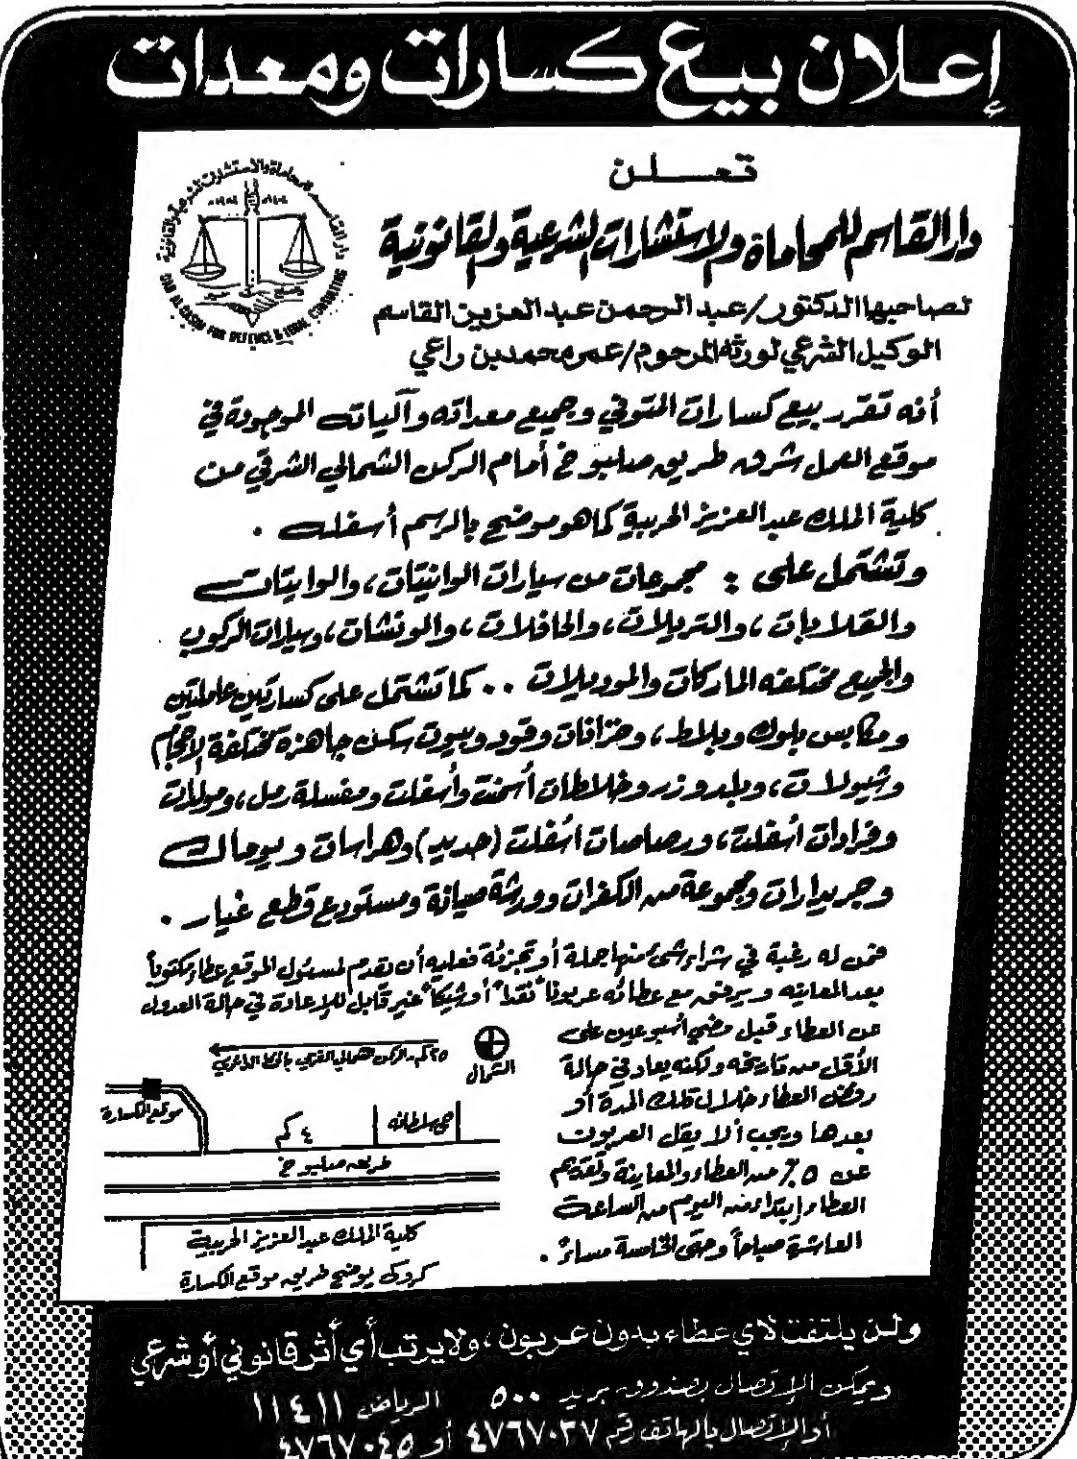 إعلان بيع كسارات ومعدات
تعلن
دار القاسم للمحاماة والاستشارات الشرعية والقانونية
لصاحبها الدكتور/عبد الرحمن عبد العزيز القاسم
الوكيل الشرعي لورثة المرحوم/عمر محمد بن راعي
أنه تقرر بيع كسارات المتوفي وجميع معداته وآلياته الموجودة في
موقع العمل شرق طريق صلبوخ أمام الركن الشمالي الشرقي من
كلية الملك عبد العزيز الحربية كما هو موضح بالرسم أسفله .
وتشتمل على : مجموعات من سيارات الوانيتات ، والوايتات
والقلابات ، والتريلات ، والحافلات ، والونشات ، وسيارات الركوب
والجميع مختلفه الماركات والموديلات . . كما تشتمل على كسارتين عاملتين
ومكابس بلوك وبلط ، وخزانات وقود وبيوت سكن جاهزة مختلفة الأحجام
وشيولات ، وبلدوزر وخلاطات أسمنت وأسفلت ومغسلة رمل ، ومولدات
وفرادات أسفلت ، ورصاصات أسفلت (حديد) وهراسات وبوماك
وجريدارات ومجموعة من الكفرات وورشة صيانة ومستودع قطع غيار .
فمن له رغبة في شراء شئ منها جملة أو تجزئة فعليه أن يتقدم لمسئول الموقع عطاء مكتوباً
بعد المعاينه ويرفق مع عطائه عربوناً نقداً أو شيكاً غير قابل للإعادة في حالة العدول
عن العطاء قبل مضي أسبوعين على
الأقل من تاريخه ولكنه يعاد في حالة
رفض العطاء خلال تلك المدة أو
بعدها ويجب ألا يقل العربون
عن ٥٪ من العطاء والمعاينة وتقديم
العطاء إبتداء من اليوم من الساعة
العاشرة صباحاً وحتى الخامسة مساءً .
الشمال
موقع الكسارة
٤ كم
حي سلطانه
طريق صلبوخ
كلية الملك عبد العزيز الحربية
كروكي يوضح طريق موقع الكسارة
ولن يلتفت لاي عطاء بدون عربون ، ولا يرتب أي أثر قانوني أو شرعي
ويمكن الإتصال بصندوق بريد ٥٠٠ الرياض ١١٤١١
أو الإتصال بالهاتف رقم ٤٧٦٧٠٣٧ أو ٤٧٦٧٠٤٥
DAR AL-QASSIM FOR DEFENCE & LEGAL CONSULTING